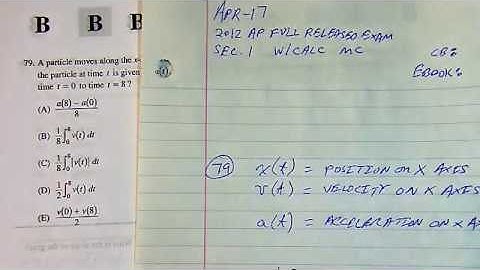 B B B
79. A particle moves along the x-
the particle at time t is given
time t = 0 to time t = 8?
(A) a(8) − a(0) / 8
(B) 1/8 ∫₀⁸ v(t) dt
(C) 1/8 ∫₀⁸ |v(t)| dt
(D) 1/2 ∫₀⁸ v(t) dt
(E) v(0) + v(8) / 2
APR-17
2012 AP FULL RELEASED EXAM
SEC. 1 W/CALC MC
CB:
EBOOK:
79 x(t) = POSITION ON X AXIS
v(t) = VELOCITY ON X AXIS
a(t) = ACCELERATION ON X AX